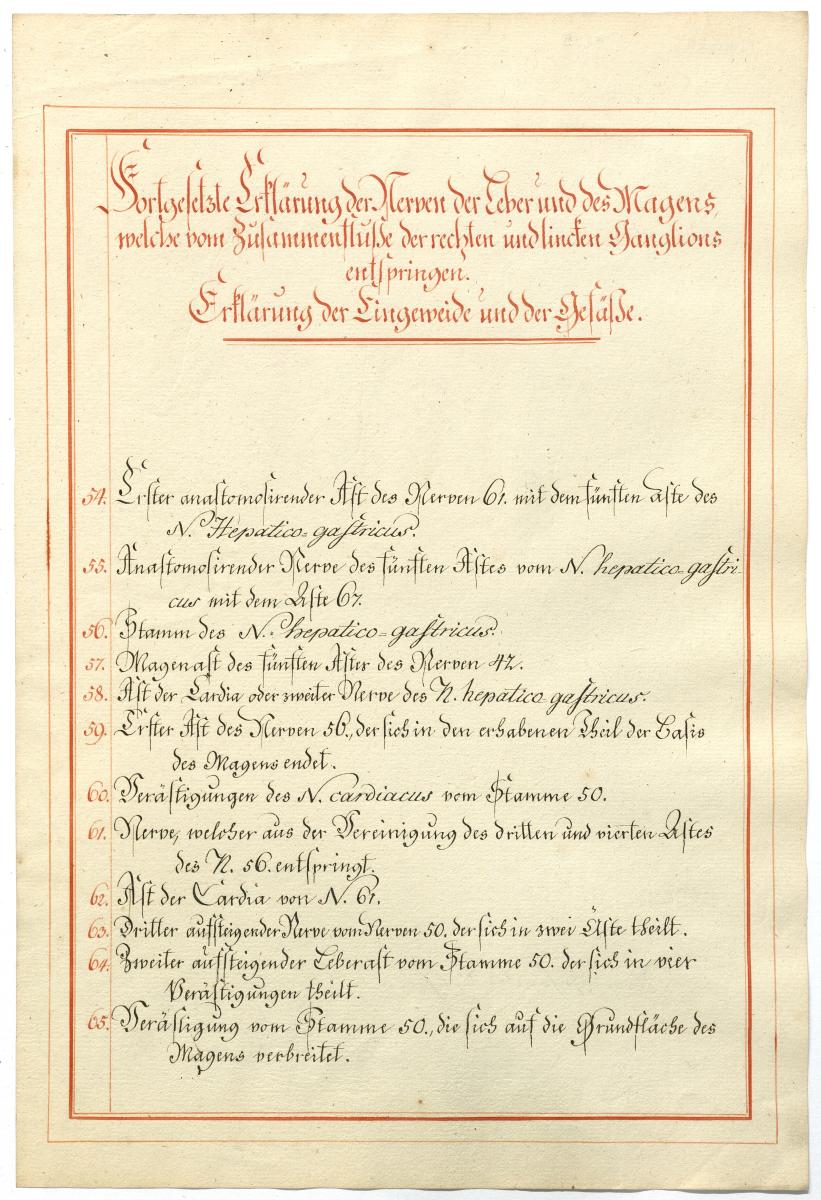 Fortgesetzte Erklärung der Nerven der Leber und des Magens,
welche vom Zusammenfluße der rechten und lincken Ganglions
entspringen.
Erklärung der Eingeweide und der Gefäße.
54. Erster anastomosirender Ast des Nerven 61. mit dem fünften Aste des
N. Hepatico-gastricus.
55. Anastomosirender Nerve des fünften Astes vom N. hepatico-gastri-
cus mit dem Aste 67.
56. Stamm des N. hepatico-gastricus.
57. Magenast des fünften Astes des Nerven 42.
58. Ast der Cardia oder zweiter Nerve des N. hepatico-gastricus.
59. Erster Ast des Nerven 56., der sich in den erhabenen Theil der Basis
des Magens endet.
60. Verästigungen des N. cardiacus vom Stamme 50.
61. Nerve, welcher aus der Vereinigung des dritten und vierten Astes
des N. 56. entspringt.
62. Ast der Cardia von N. 61.
63. Dritter aufsteigender Nerve vom Nerven 50. der sich in zwei Äste theilt.
64. Zweiter aufsteigender Leberast vom Stamme 50. der sich in vier
Verästigungen theilt.
65. Verästigung vom Stamme 50., die sich auf die Grundfläche des
Magens verbreitet.